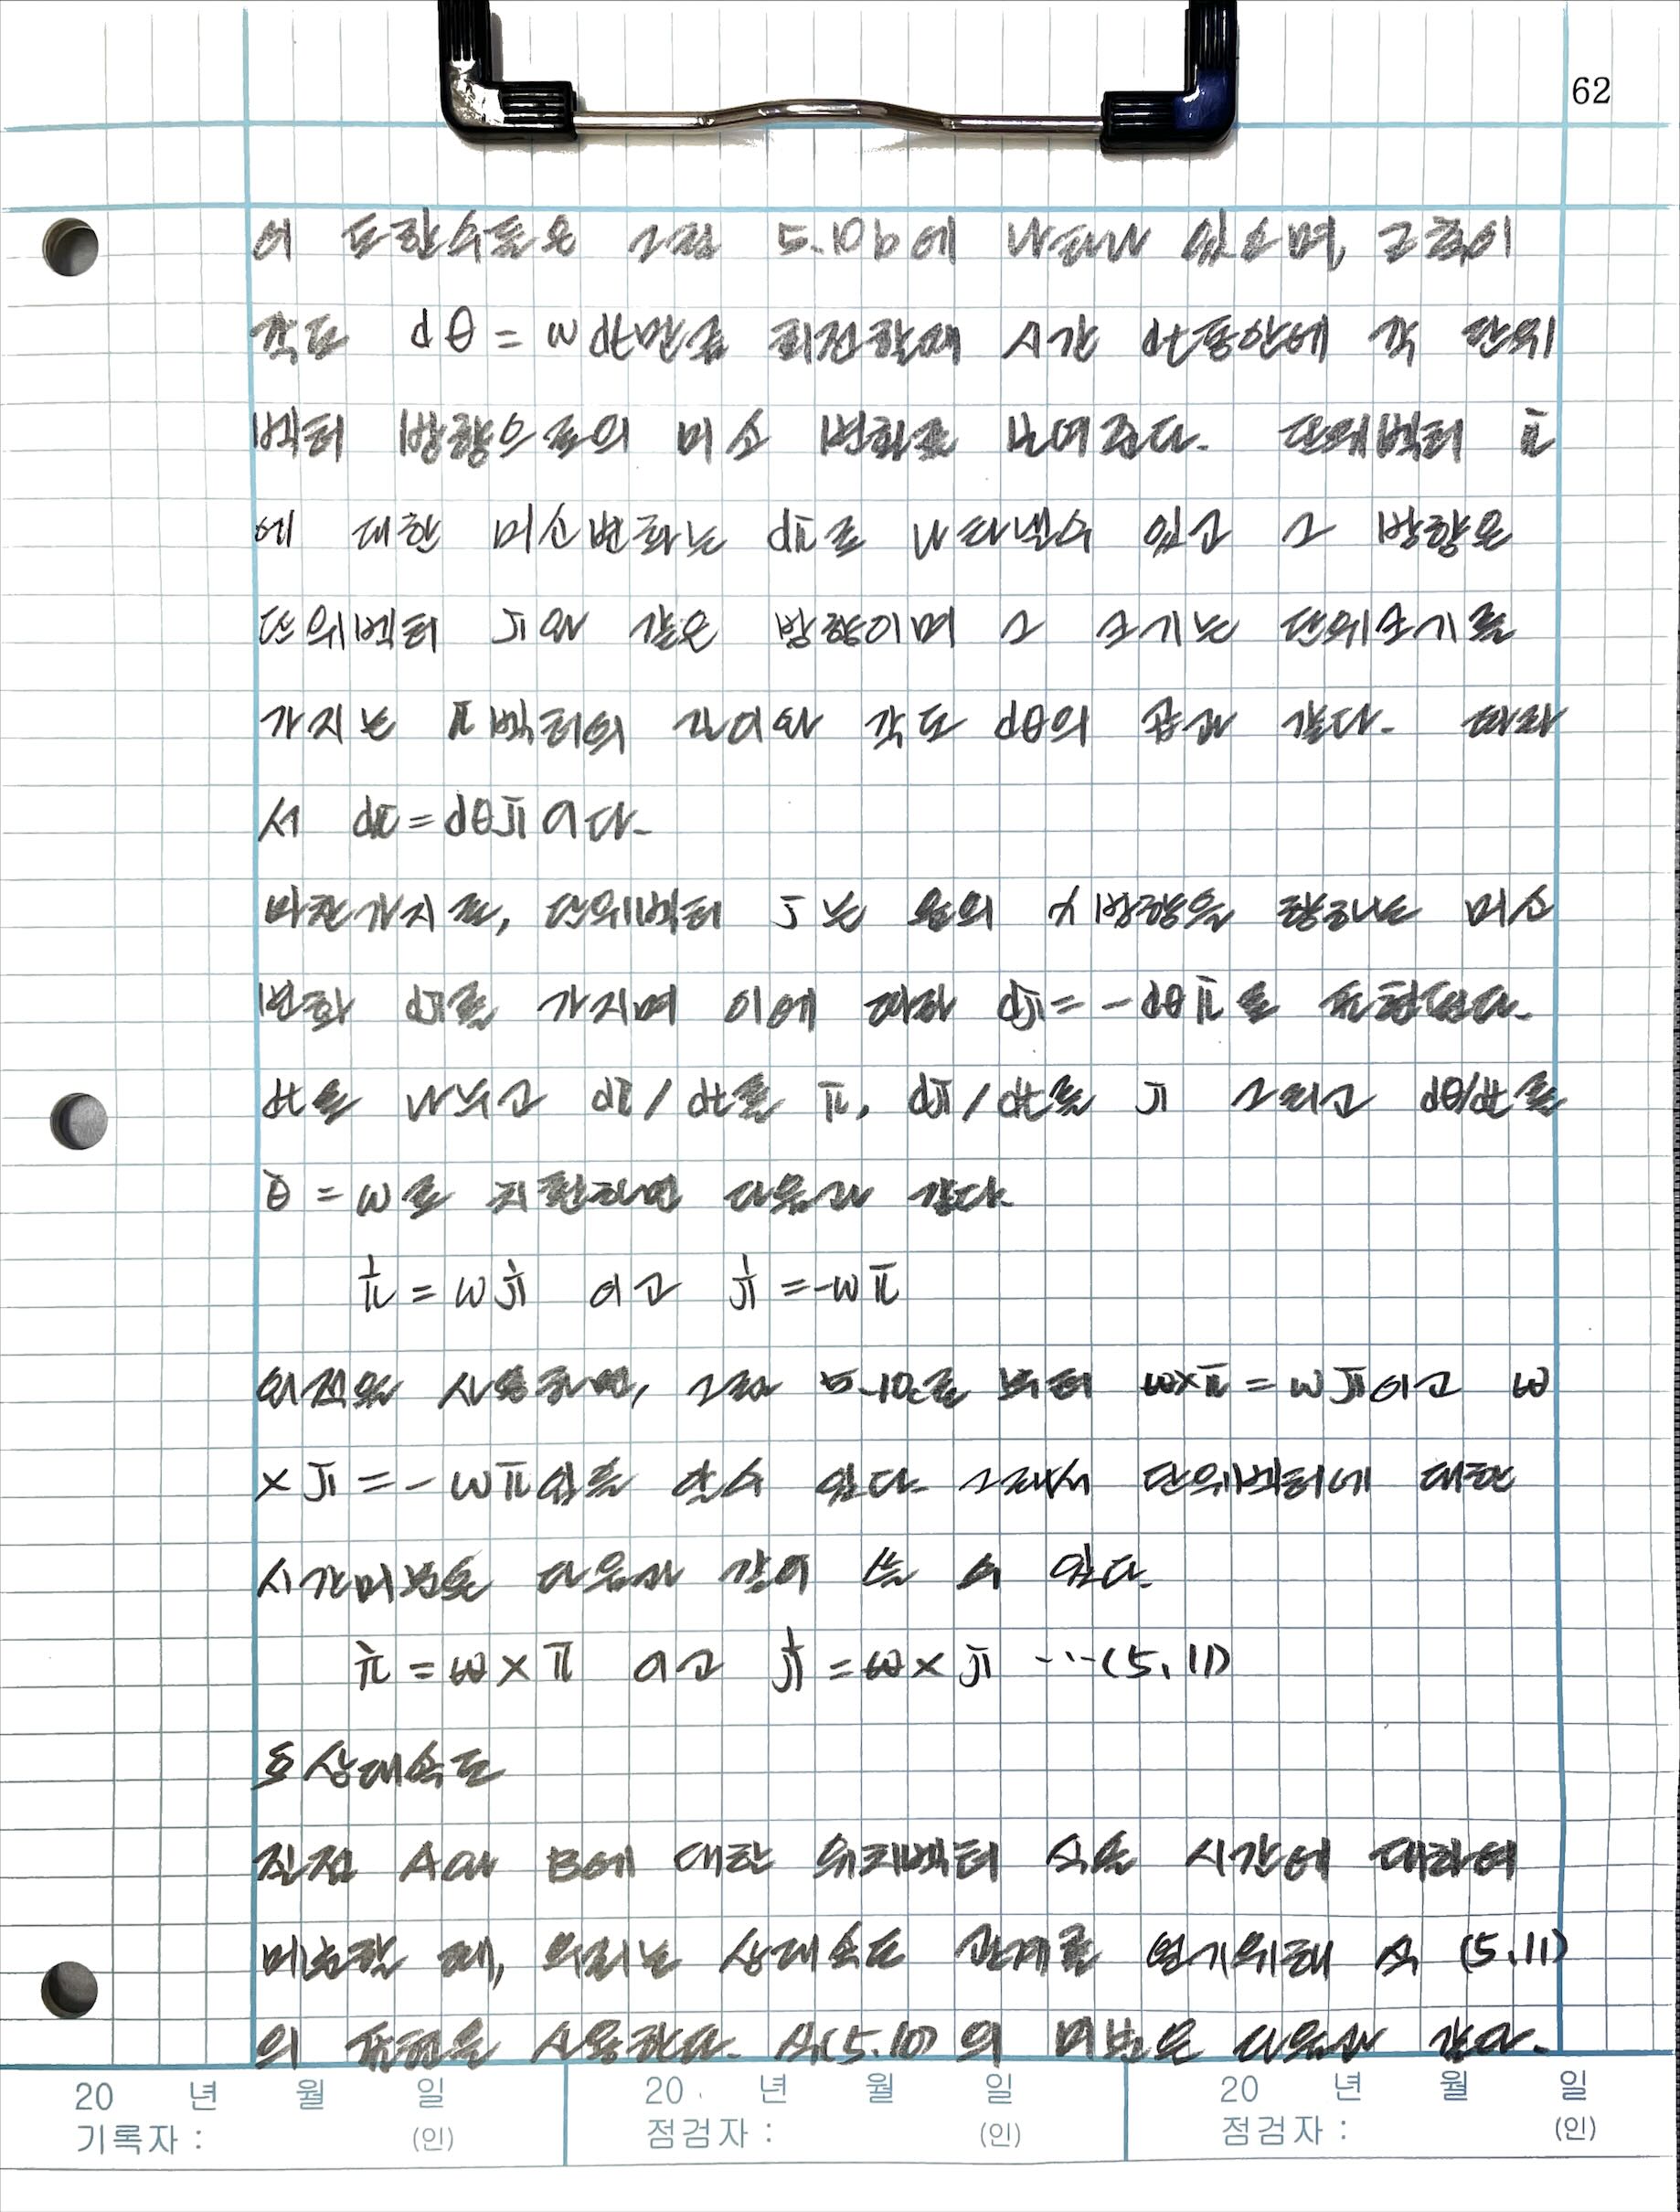 62
이 도함수들은 그림 5.10b에 나타나 있으며, 그 축이
각도 dθ = ω dt만큼 회전할때 시간 dt동안에 각 단위
벡터 방향으로의 미소 변화를 보여준다. 단위벡터 i
에 대한 미소변화는 di로 나타낼수 있고 그 방향은
단위벡터 j와 같은 방향이며 그 크기는 단위크기를
가지는 i벡터의 길이와 각도 dθ의 곱과 같다. 따라
서 di = dθj이다.
마찬가지로, 단위벡터 j는 음의 x방향을 향하는 미소
변화 dj를 가지며 이에 따라 dj = -dθi로 표현된다.
dt로 나누고 di/dt를 i, dj/dt를 j 그리고 dθ/dt를
θ̇ = ω로 치환하면 다음과 같다.
i̇ = ωj 이고 j̇ = -ωi
외적을 사용하면, 그림 5.10c로 부터 ω×i = ωj이고 ω
×j = -ωi임을 알수 있다. 그래서 단위벡터에 대한
시간미분은 다음과 같이 쓸 수 있다.
i̇ = ω × i 이고 j̇ = ω × j ···(5.11)
상대속도
질점 A와 B에 대한 위치벡터 식을 시간에 대하여
미분할 때, 우리는 상대속도 관계를 얻기위해 식 (5.11)
의 표현을 사용한다. 식(5.10)의 미분은 다음과 같다.
20 년 월 일 20 년 월 일 20 년 월 일
기록자 : (인) 점검자 : (인) 점검자 : (인)